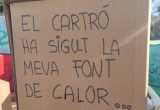 EL CARTRÓ
HA SIGUT LA
MEVA FONT
DE CALOR...